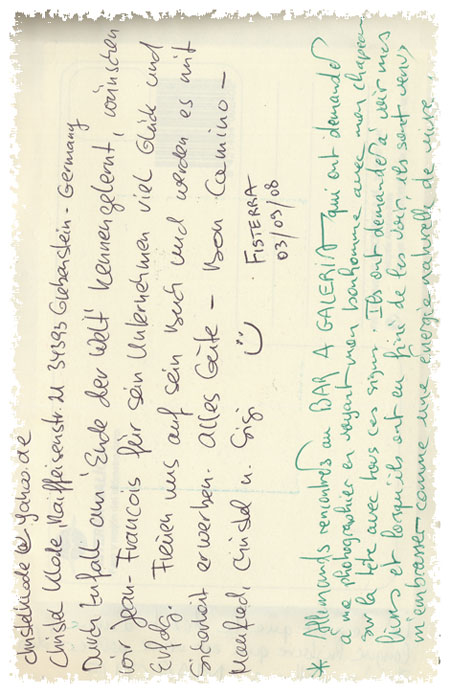 christelklode@yahoo.de
Christel Klode, Raiffeisenstr. 21 34393 Grebenstein - Germany
Durch Zufall am 'Ende der Welt' kennengelernt, wünschen
wir Jean-Francois für sein Unternehmen viel Glück und
Erfolg. Freuen uns auf sein Buch und werden es mit
Sicherheit erwerben. Alles Gute - Bon Camino -
Manfred, Christel u. Sigi
FISTERRA
03/09/08
* Allemands rencontrés au BAR A GALERIA qui ont demandé
à me photographier en voyant mon bonhomme avec mon chapeau
sur la tête avec tous ces signes. Ils ont demandé à voir mes
livres et lorsqu'ils ont eu fini de les voir, ils sont venus
m'embrasser - comme une énergie naturelle de vivre...